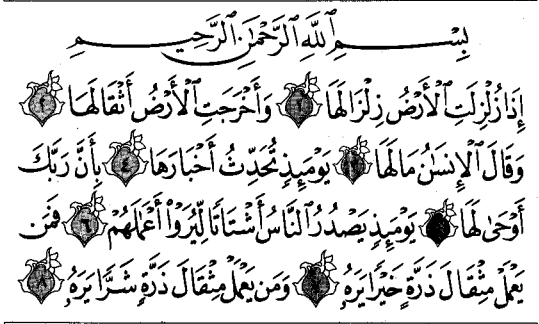 بِسْمِ ٱللَّهِ ٱلرَّحْمَٰنِ ٱلرَّحِيمِ
إِذَا زُلْزِلَتِ ٱلْأَرْضُ زِلْزَالَهَا ١ وَأَخْرَجَتِ ٱلْأَرْضُ أَثْقَالَهَا ٢
وَقَالَ ٱلْإِنسَٰنُ مَالَهَا ٣ يَوْمَئِذٍ تُحَدِّثُ أَخْبَارَهَا ٤ بِأَنَّ رَبَّكَ
أَوْحَىٰ لَهَا ٥ يَوْمَئِذٍ يَصْدُرُ ٱلنَّاسُ أَشْتَاتًا لِّيُرَوْا۟ أَعْمَٰلَهُمْ ٦ فَمَن
يَعْمَلْ مِثْقَالَ ذَرَّةٍ خَيْرًا يَرَهُۥ ٧ وَمَن يَعْمَلْ مِثْقَالَ ذَرَّةٍ شَرًّا يَرَهُۥ ٨